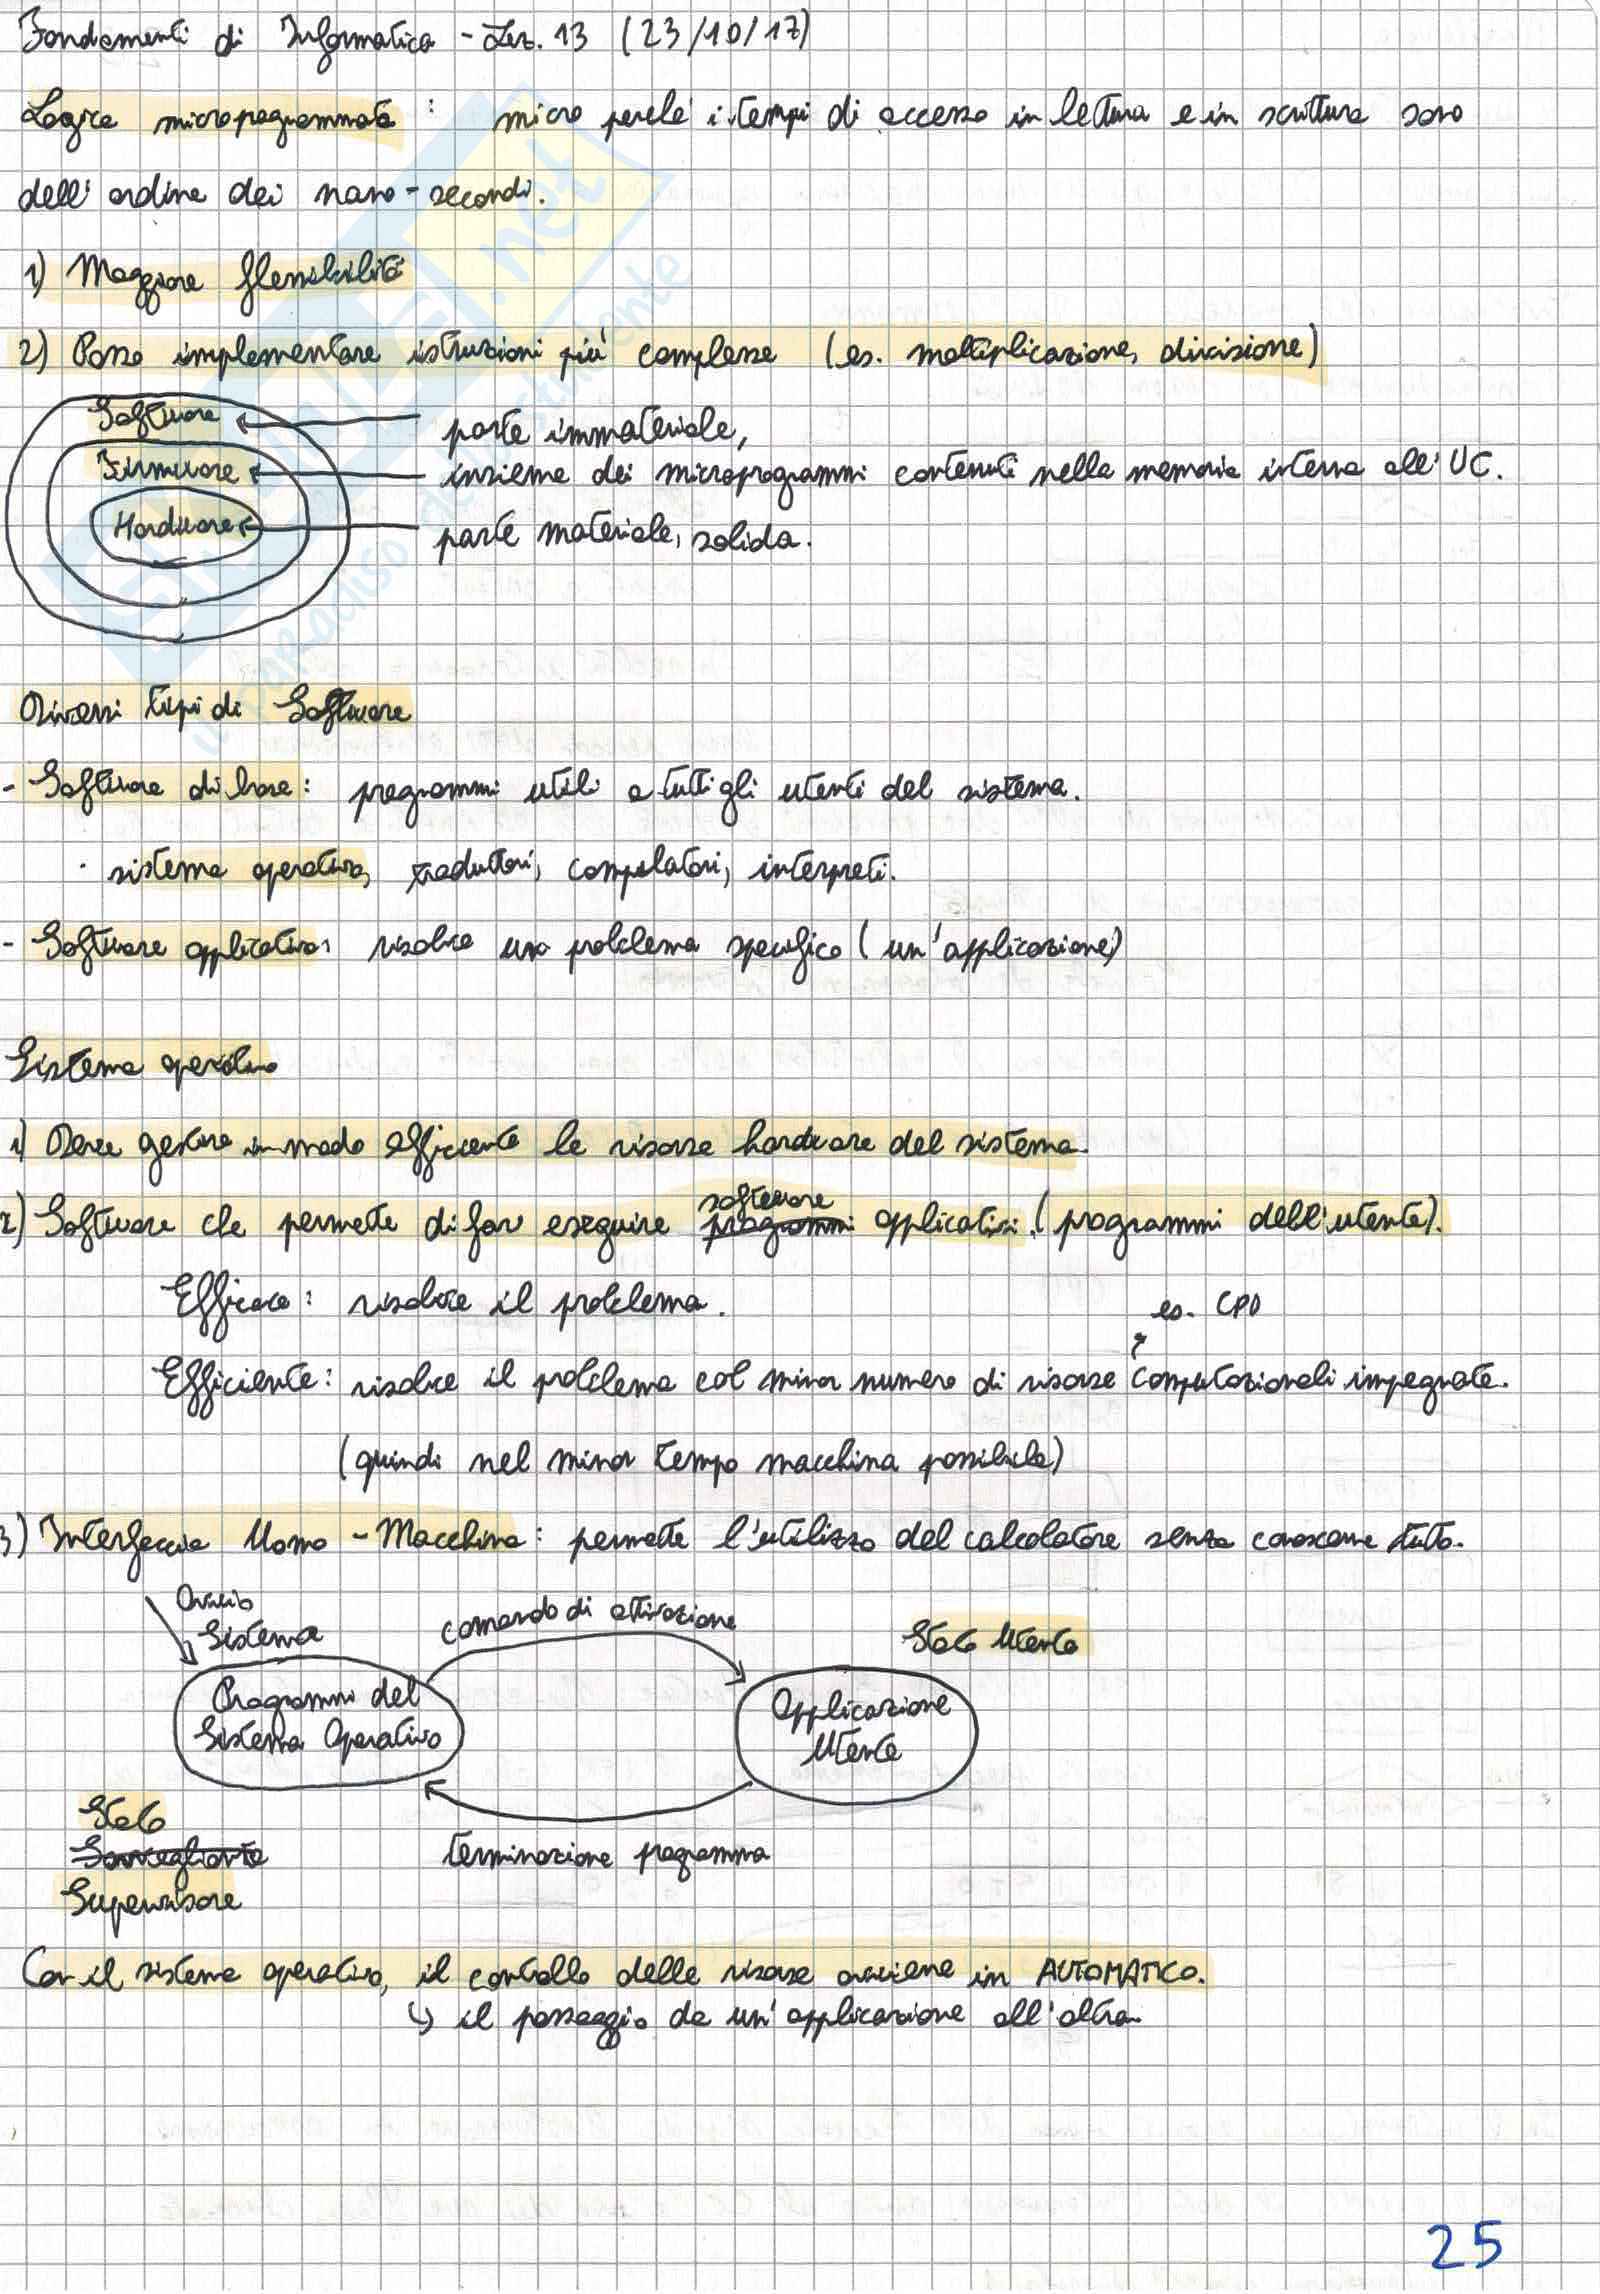 Fondamenti di Informatica - Lez. 13 (23/10/17)
Logica microprogrammata : micro perché i tempi di accesso in lettura e in scrittura sono
dell'ordine dei nano-secondi.
1) Maggiore flessibilità
2) Posso implementare istruzioni più complesse (es. moltiplicazione, divisione)
Software
parte immateriale,
Firmware
insieme dei microprogrammi contenuti nella memoria interna all'UC.
Hardware
parte materiale, solida.
Diversi tipi di Software
- Software di base: programmi utili a tutti gli utenti del sistema.
· sistema operativo, traduttori, compilatori, interpreti.
- Software applicativo: risolve un problema specifico (un'applicazione)
Sistema operativo
1) Deve gestire in modo efficiente le risorse hardware del sistema.
software
2) Software che permette di far eseguire programmi applicativi. (programmi dell'utente).
Efficace: risolve il problema.
es. CPU
Efficiente: risolve il problema col minor numero di risorse computazionali impegnate.
(quindi nel minor tempo macchina possibile)
3) Interfaccia Uomo - Macchina: permette l'utilizzo del calcolatore senza conoscerne tutto.
Avvio
Sistema
comando di attivazione
Stato Utente
Programmi del
Sistema Operativo
Applicazione
Utente
Stato
Sorvegliante
Supervisore
terminazione programma
Con il sistema operativo, il controllo delle risorse avviene in AUTOMATICO.
↳ il passaggio da un'applicazione all'altra.
25
SKUOLA.net
il paradiso dello studente